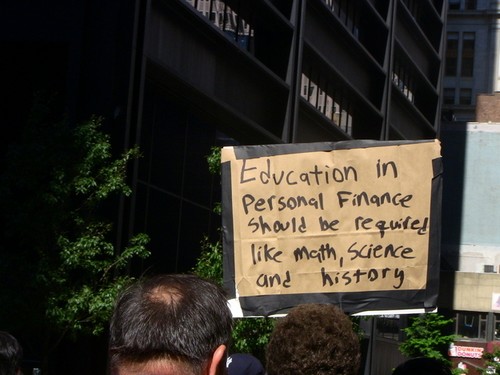 Education in
Personal Finance
should be required
like math, science
and history
DONUTS